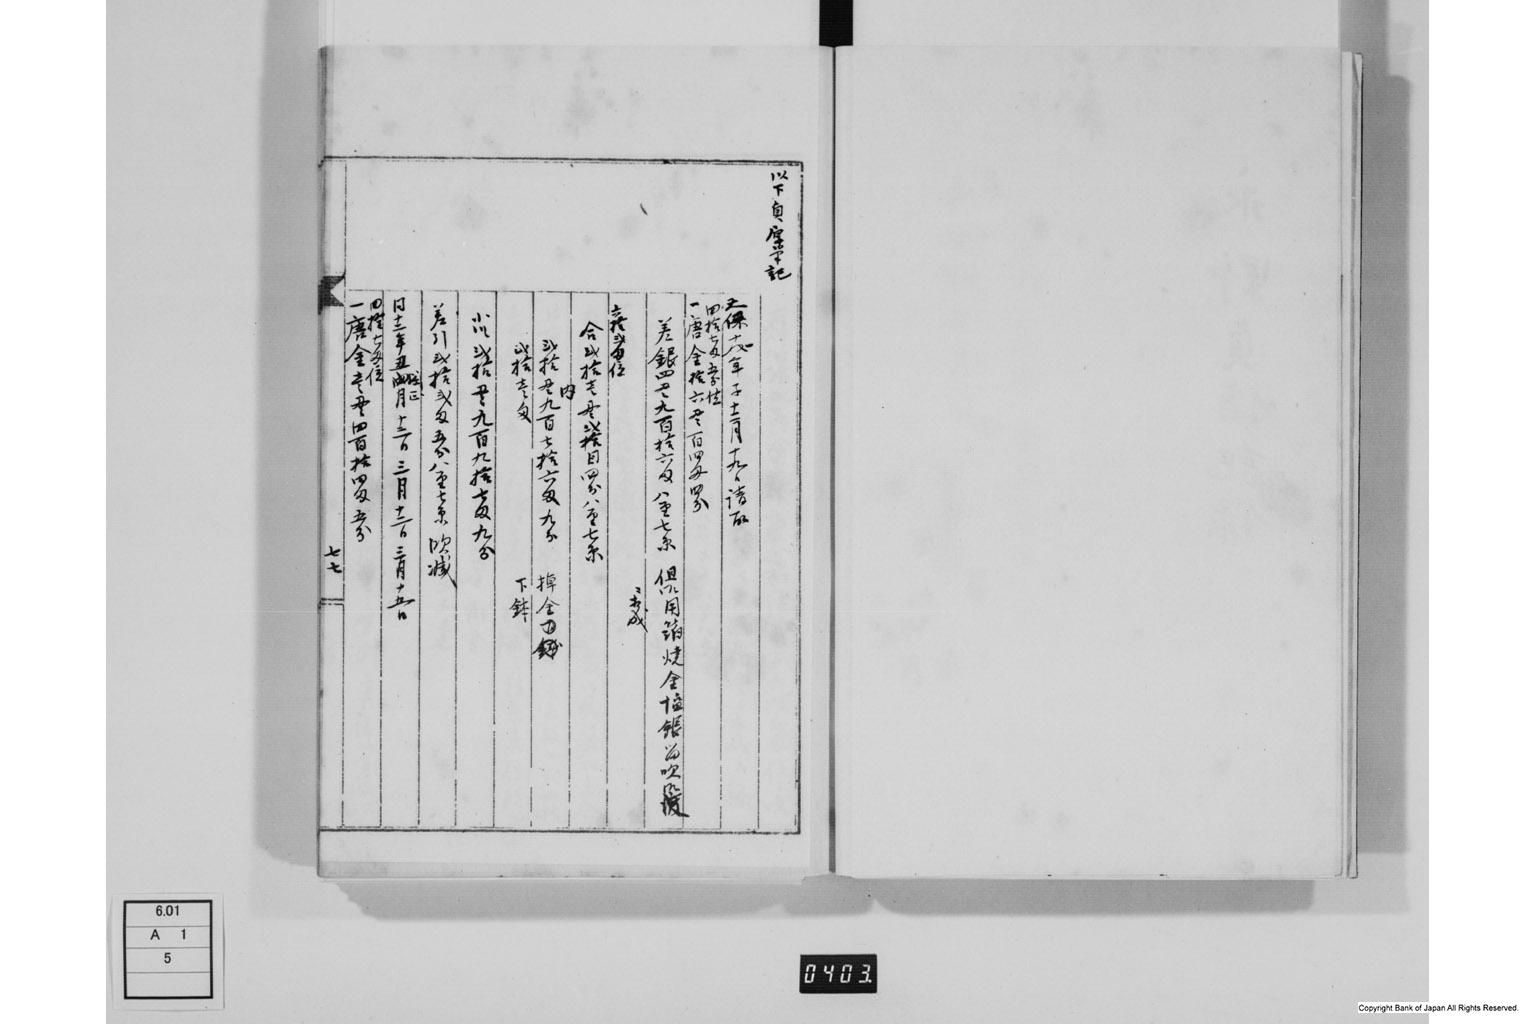 以下貞寧筆記
天保十一年子十二月十九日請取
四拾七匁五分位
一唐金拾六貫百四匁四分
差銀四貫九百拾六匁八厘七系 但用箔焼金塩銀為吹
六拾弐匁位
合弐拾壱貫弐拾目四分八厘七系
内
弐拾貫九百七拾六匁九分 掉金
弐拾壱匁 下鉢
小以弐拾貫九百九拾七匁九分
差引弐拾弐匁五分八厘七系 吹減
同十二年丑 月十二日 三月十二日 三月十五日
四拾七匁位
一唐金壱貫四百拾四匁五分
七七
6.01
A 1
5
0403.
Copyright Bank of Japan All Rights Reserved.